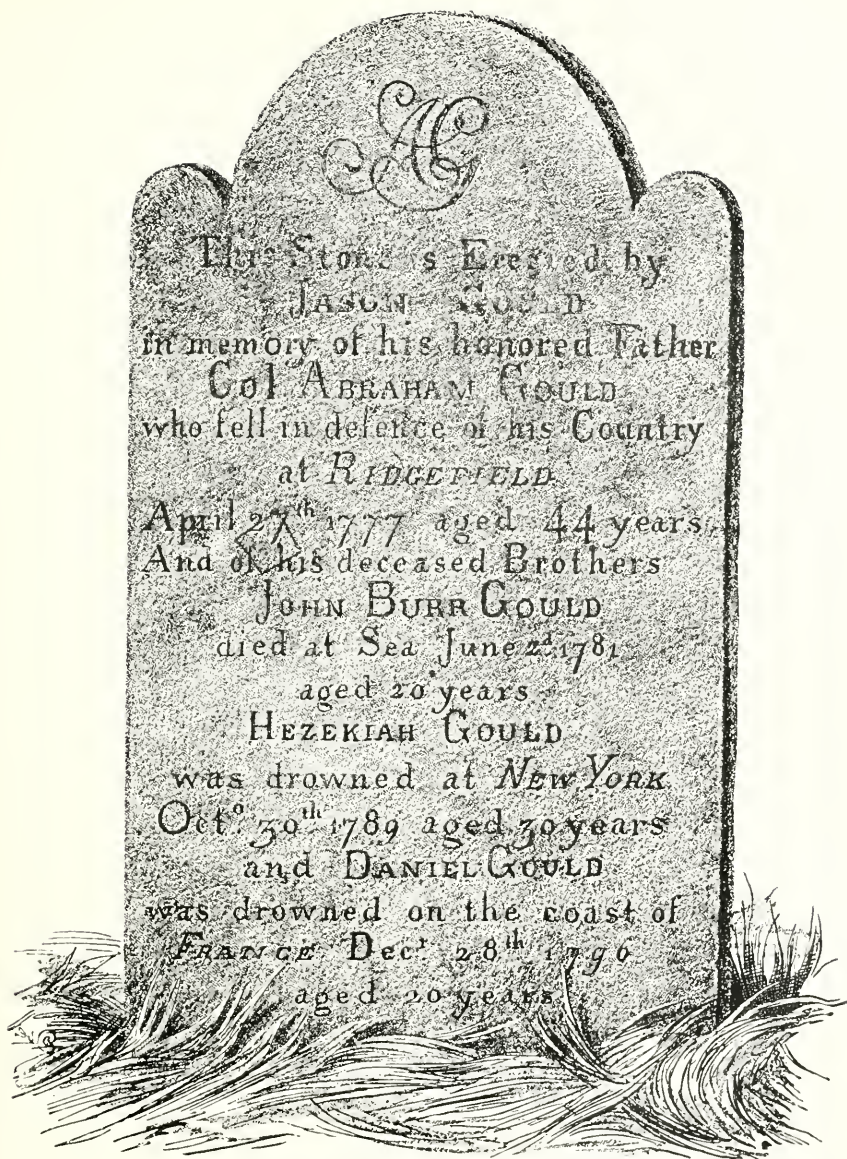 AG
This Stone is Erected by
JASON GOULD
in memory of his honored Father
Col ABRAHAM GOULD
who fell in defence of his Country
at RIDGEFIELD
April 27th 1777 aged 44 years
And of his deceased Brothers
JOHN BURR GOULD
died at Sea June 2d 1781
aged 20 years
HEZEKIAH GOULD
was drowned at NEW YORK
Octo 30th 1789 aged 30 years
and DANIEL GOULD
was drowned on the coast of
FRANCE Decr 28th 1796
aged 20 years